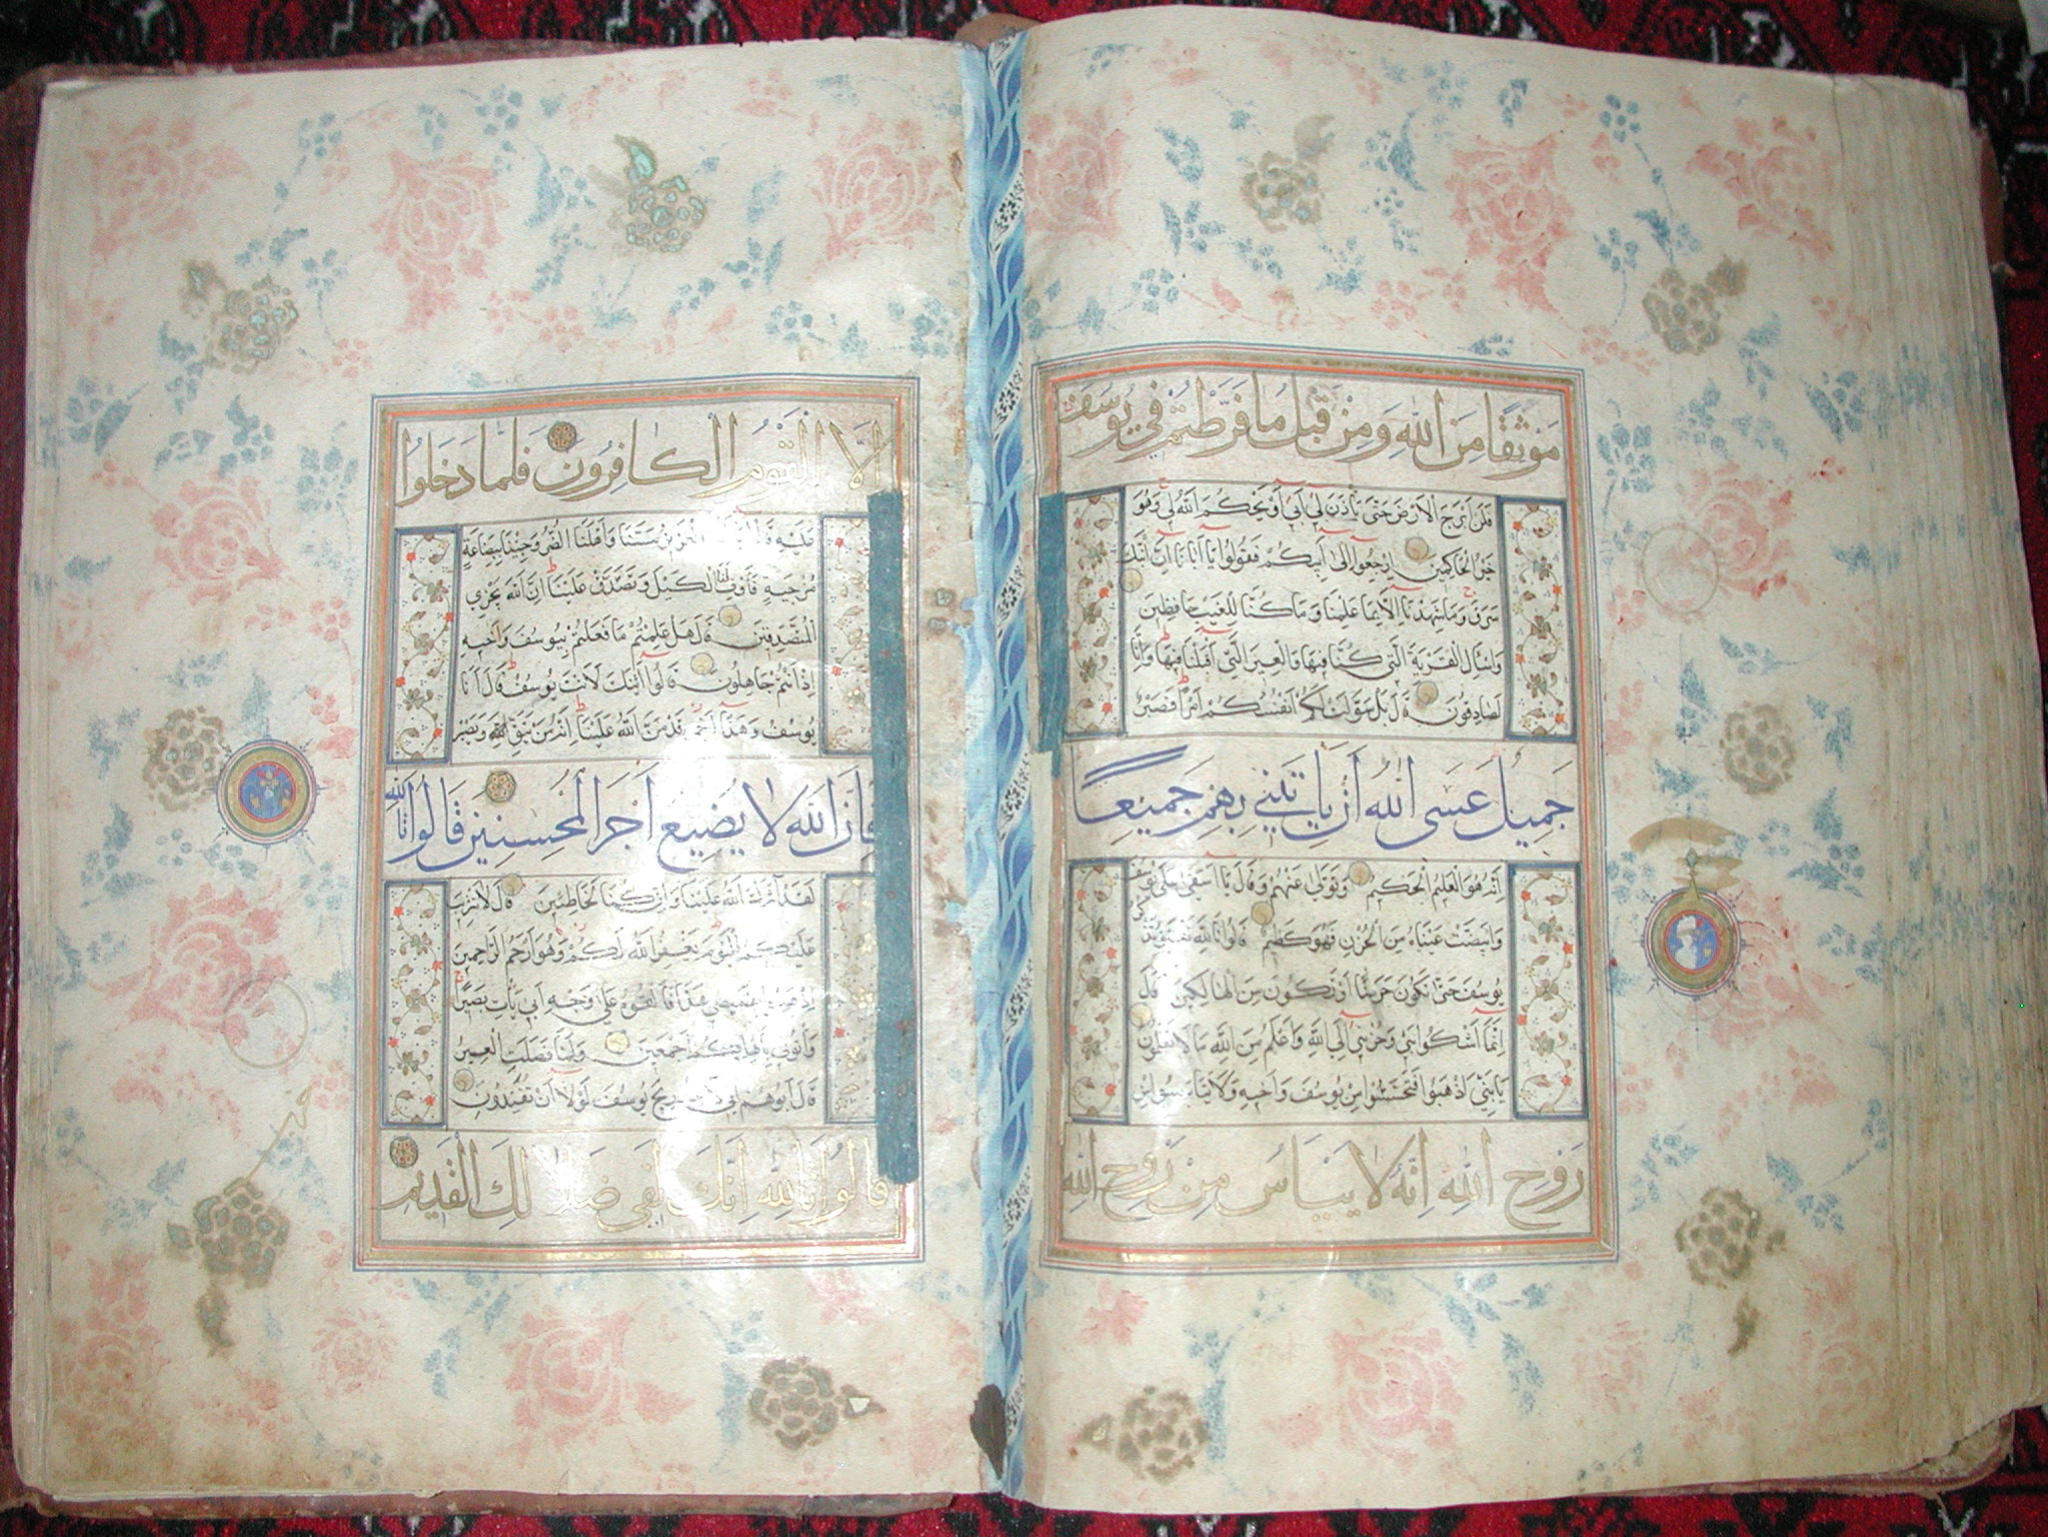 مَوْثِقًا مِنَ اللَّهِ وَمِنْ قَبْلُ مَا فَرَّطْتُمْ فِي يُوسُفَ
فَلَنْ أَبْرَحَ الْأَرْضَ حَتَّى يَأْذَنَ لِي أَبِي أَوْ يَحْكُمَ اللَّهُ لِي وَهُوَ
خَيْرُ الْحَاكِمِينَ ارْجِعُوا إِلَى أَبِيكُمْ فَقُولُوا يَا أَبَانَا إِنَّ ابْنَكَ
سَرَقَ وَمَا شَهِدْنَا إِلَّا بِمَا عَلِمْنَا وَمَا كُنَّا لِلْغَيْبِ حَافِظِينَ
وَاسْئَلِ الْقَرْيَةَ الَّتِي كُنَّا فِيهَا وَالْعِيرَ الَّتِي أَقْبَلْنَا فِيهَا وَإِنَّا
لَصَادِقُونَ قَالَ بَلْ سَوَّلَتْ لَكُمْ أَنْفُسُكُمْ أَمْرًا فَصَبْرٌ
جَمِيلٌ عَسَى اللَّهُ أَنْ يَأْتِيَنِي بِهِمْ جَمِيعًا
إِنَّهُ هُوَ الْعَلِيمُ الْحَكِيمُ وَتَوَلَّى عَنْهُمْ وَقَالَ يَا أَسَفَى عَلَى يُوسُفَ
وَابْيَضَّتْ عَيْنَاهُ مِنَ الْحُزْنِ فَهُوَ كَظِيمٌ قَالُوا تَاللَّهِ تَفْتَؤُ تَذْكُرُ
يُوسُفَ حَتَّى تَكُونَ حَرَضًا أَوْ تَكُونَ مِنَ الْهَالِكِينَ قَالَ
إِنَّمَا أَشْكُوا بَثِّي وَحُزْنِي إِلَى اللَّهِ وَأَعْلَمُ مِنَ اللَّهِ مَا لَا تَعْلَمُونَ
يَا بَنِيَّ اذْهَبُوا فَتَحَسَّسُوا مِنْ يُوسُفَ وَأَخِيهِ وَلَا تَيْأَسُوا مِنْ
رَوْحِ اللَّهِ إِنَّهُ لَا يَيْأَسُ مِنْ رَوْحِ اللَّهِ
إِلَّا الْقَوْمُ الْكَافِرُونَ فَلَمَّا دَخَلُوا
عَلَيْهِ قَالُوا الْعَزِيزُ مَسَّنَا وَأَهْلَنَا الضُّرُّ وَجِئْنَا بِبِضَاعَةٍ
مُزْجَاةٍ فَأَوْفِ لَنَا الْكَيْلَ وَتَصَدَّقْ عَلَيْنَا إِنَّ اللَّهَ يَجْزِي
الْمُتَصَدِّقِينَ قَالَ هَلْ عَلِمْتُمْ مَا فَعَلْتُمْ بِيُوسُفَ وَأَخِيهِ
إِذْ أَنْتُمْ جَاهِلُونَ قَالُوا أَئِنَّكَ لَأَنْتَ يُوسُفُ قَالَ أَنَا
يُوسُفُ وَهَذَا أَخِي قَدْ مَنَّ اللَّهُ عَلَيْنَا إِنَّهُ مَنْ يَتَّقِ وَيَصْبِرْ
فَإِنَّ اللَّهَ لَا يُضِيعُ أَجْرَ الْمُحْسِنِينَ قَالُوا تَاللَّهِ
لَقَدْ آثَرَكَ اللَّهُ عَلَيْنَا وَإِنْ كُنَّا لَخَاطِئِينَ قَالَ لَا تَثْرِيبَ
عَلَيْكُمُ الْيَوْمَ يَغْفِرُ اللَّهُ لَكُمْ وَهُوَ أَرْحَمُ الرَّاحِمِينَ
اذْهَبُوا بِقَمِيصِي هَذَا فَأَلْقُوهُ عَلَى وَجْهِ أَبِي يَأْتِ بَصِيرًا
وَأْتُونِي بِأَهْلِكُمْ أَجْمَعِينَ وَلَمَّا فَصَلَتِ الْعِيرُ
قَالَ أَبُوهُمْ إِنِّي لَأَجِدُ رِيحَ يُوسُفَ لَوْلَا أَنْ تُفَنِّدُونِ
قَالُوا تَاللَّهِ إِنَّكَ لَفِي ضَلَالِكَ الْقَدِيمِ